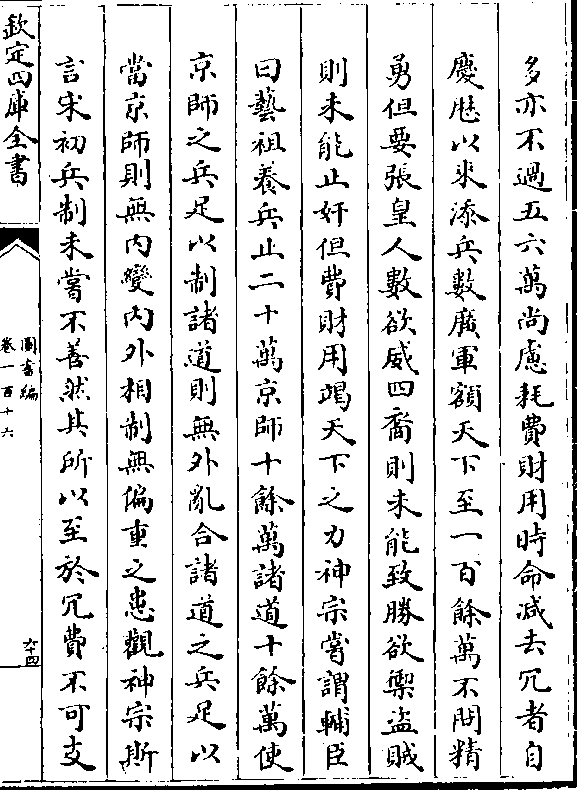 多亦不過五六萬尚慮耗費財用時命减去冗者自
慶歴以來添兵數廣軍額天下至一百餘萬不問精
勇但要張皇人數欲威四裔則未能致勝欲禦盗賊
則未能止奸但費財用竭天下之力神宗嘗謂輔臣
曰藝祖養兵止二十萬京師十餘萬諸道十餘萬使
京師之兵足以制諸道則無外亂合諸道之兵足以
當京師則無内變内外相制無偏重之患觀神宗斯
言宋初兵制未嘗不善然其所以至於冗費不可支
欽定四庫全書
圖書編
卷一百十六
六十四